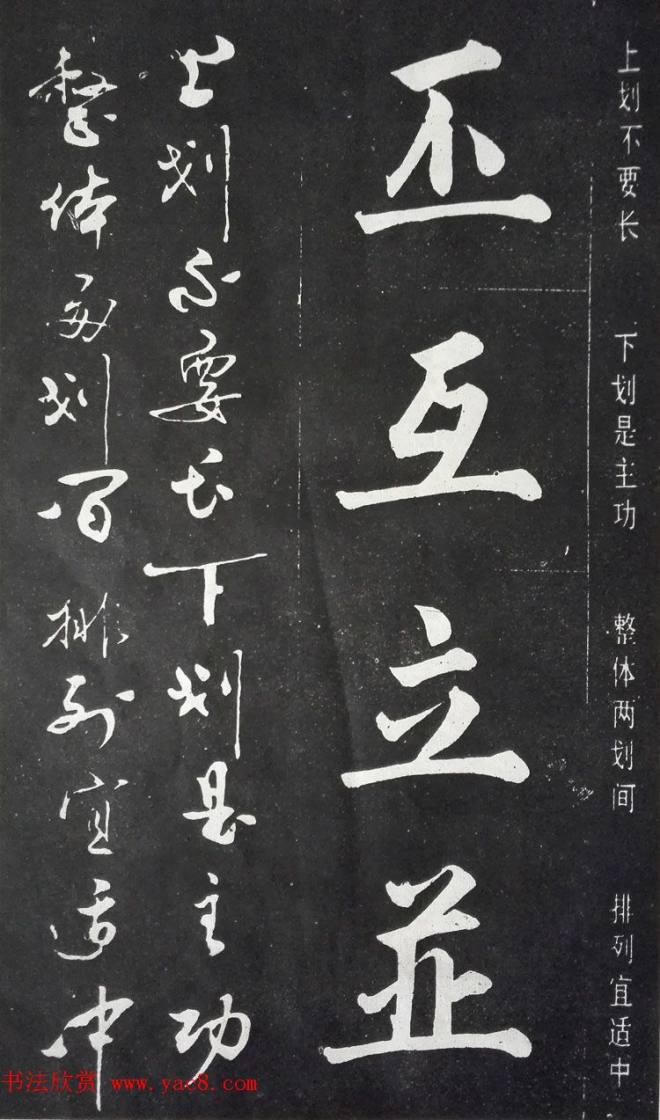 上划不要长 下划是主功 整体两划间 排列宜适中
丕互立並
上划不要长下划是主功
整体两划间排列宜适中
书法欣赏 www.yac8.com